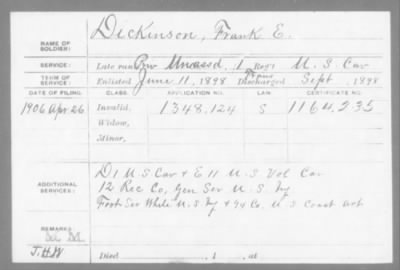 NAME OF SOLDIER: Dickinson, Frank E.
SERVICE: Late ran Prv Unassd, 1 Reg't U.S. Cav
TERM OF SERVICE: Enlisted June 11, 1898 Trans Discharged Sept , 1898
DATE OF FILING. CLASS. APPLICATION NO. LAW. CERTIFICATE NO.
1906 Apr 26 Invalid, 1348,124 S 1164,235
Widow,
Minor,
ADDITIONAL SERVICES: D 1 U S Cav + E 11 U.S. Vol Cav
12 Rec Co, Gen Ser U.S.
Foot Ser While U.S. + 94 Co, U S Coast Art
REMARKS:
J.H.W Died , 1 , at